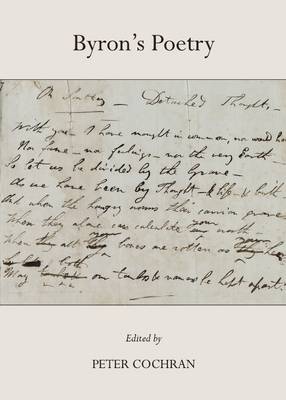 Byron's Poetry
On Southey — Detached Thoughts, —
With you — I have nought in common, nor would have
Nor fame — no feelings — nor the very Earth
So let us be divided by the Grave —
As we have been by Thought — & life — & birth
And when the hungry worms their carrion
When they alone can calculate your worth
When all bones are rotten as
May our tombs be kept apart!
Edited by
PETER COCHRAN